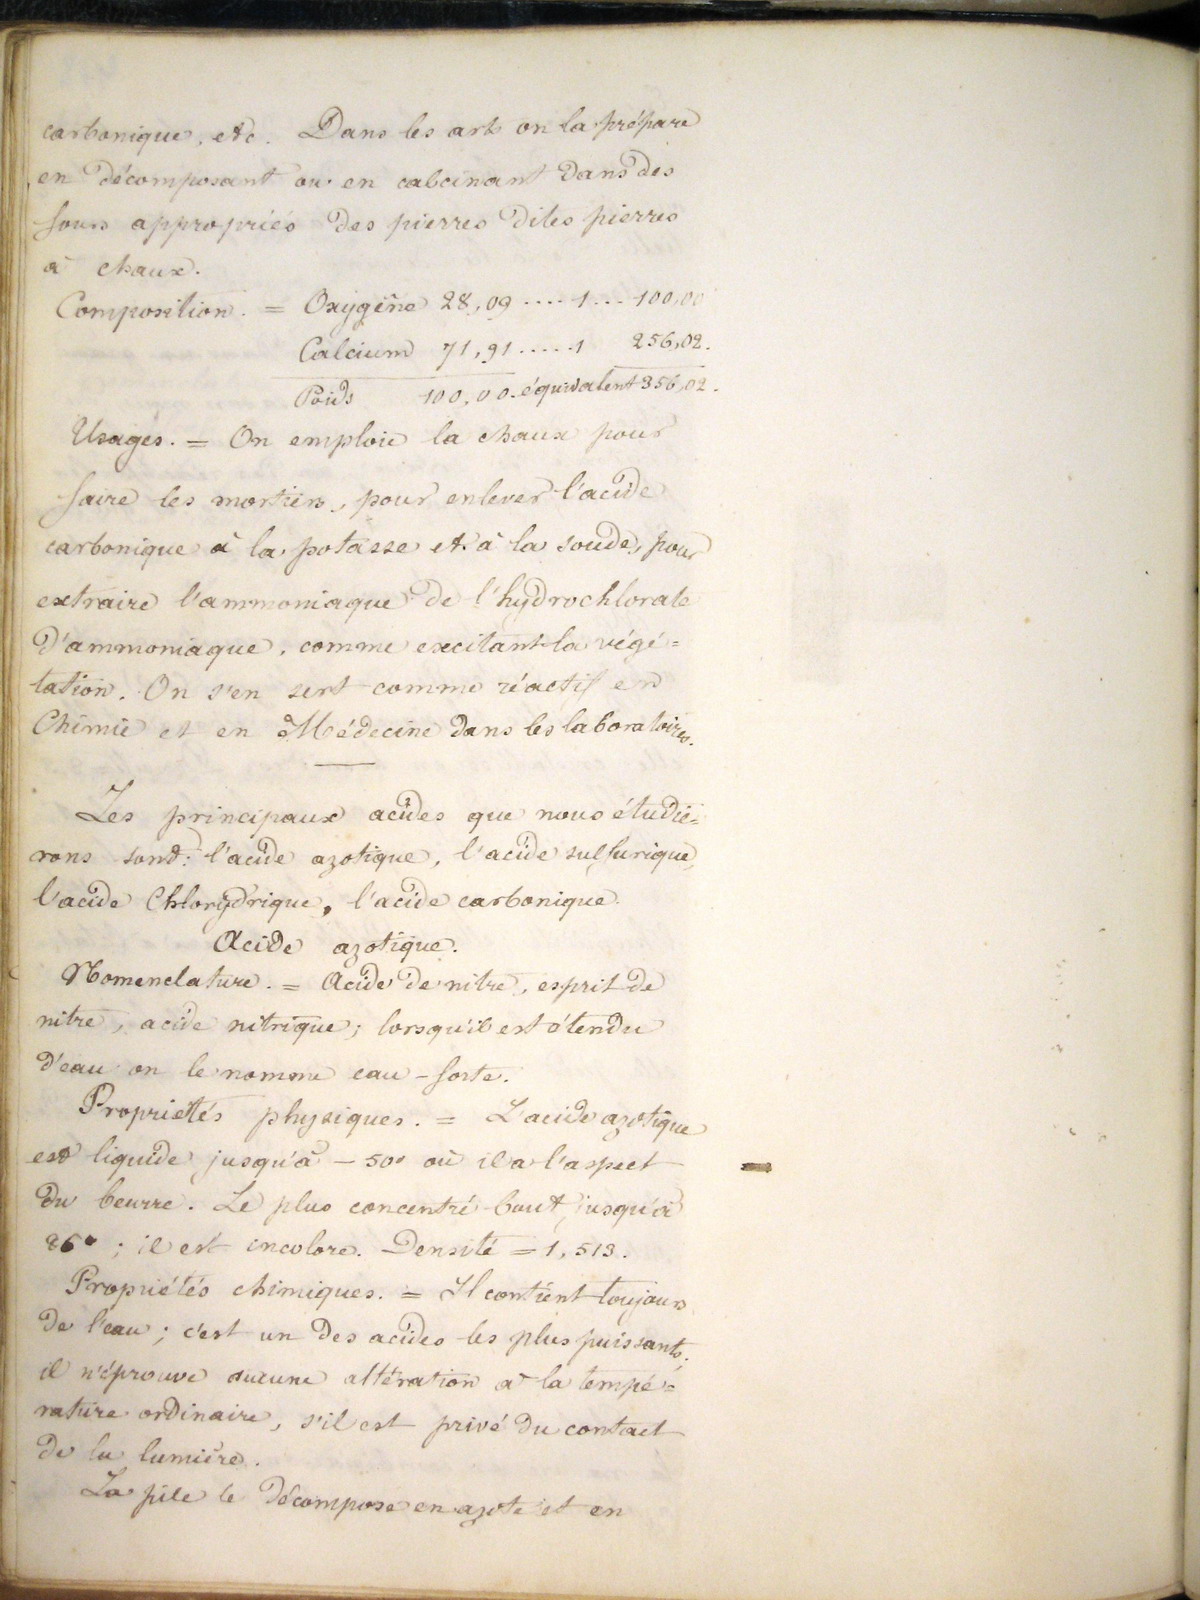 carbonique, etc. Dans les arts on la prépare
en décomposant ou en calcinant dans des
fours appropriés des pierres dites pierres
à chaux.
Composition. = Oxygène 28,09 .... 1 ... 100,00
Calcium 71,91 ..... 1 256,02.
Poids 100,00. équivalent 356,02.
Usages. = On emploie la chaux pour
faire les mortiers, pour enlever l'acide
carbonique à la potasse et à la soude, pour
extraire l'ammoniaque de l'hydrochlorate
d'ammoniaque, comme excitant la végé=
tation. On s'en sert comme réactif en
Chimie et en Médecine dans les laboratoires.
Les principaux acides que nous étudie=
rons sont: l'acide azotique, l'acide sulfurique,
l'acide Chlorydrique, l'acide carbonique.
Acide azotique.
Nomenclature. = Acide de nitre, esprit de
nitre, acide nitrique; lorsqu'il est étendu
d'eau on le nomme eau-forte.
Propriétés physiques. = L'acide azotique
est liquide jusqu'à - 50° où il a l'aspect
du beurre. Le plus concentré bout jusqu'à
86°; il est incolore. Densité = 1,513.
Propriétés chimiques. = Il contient toujours
de l'eau; c'est un des acides les plus puissants;
il n'éprouve aucune altération à la tempé=
rature ordinaire, s'il est privé du contact
de la lumière.
La pile le décompose en azote et en